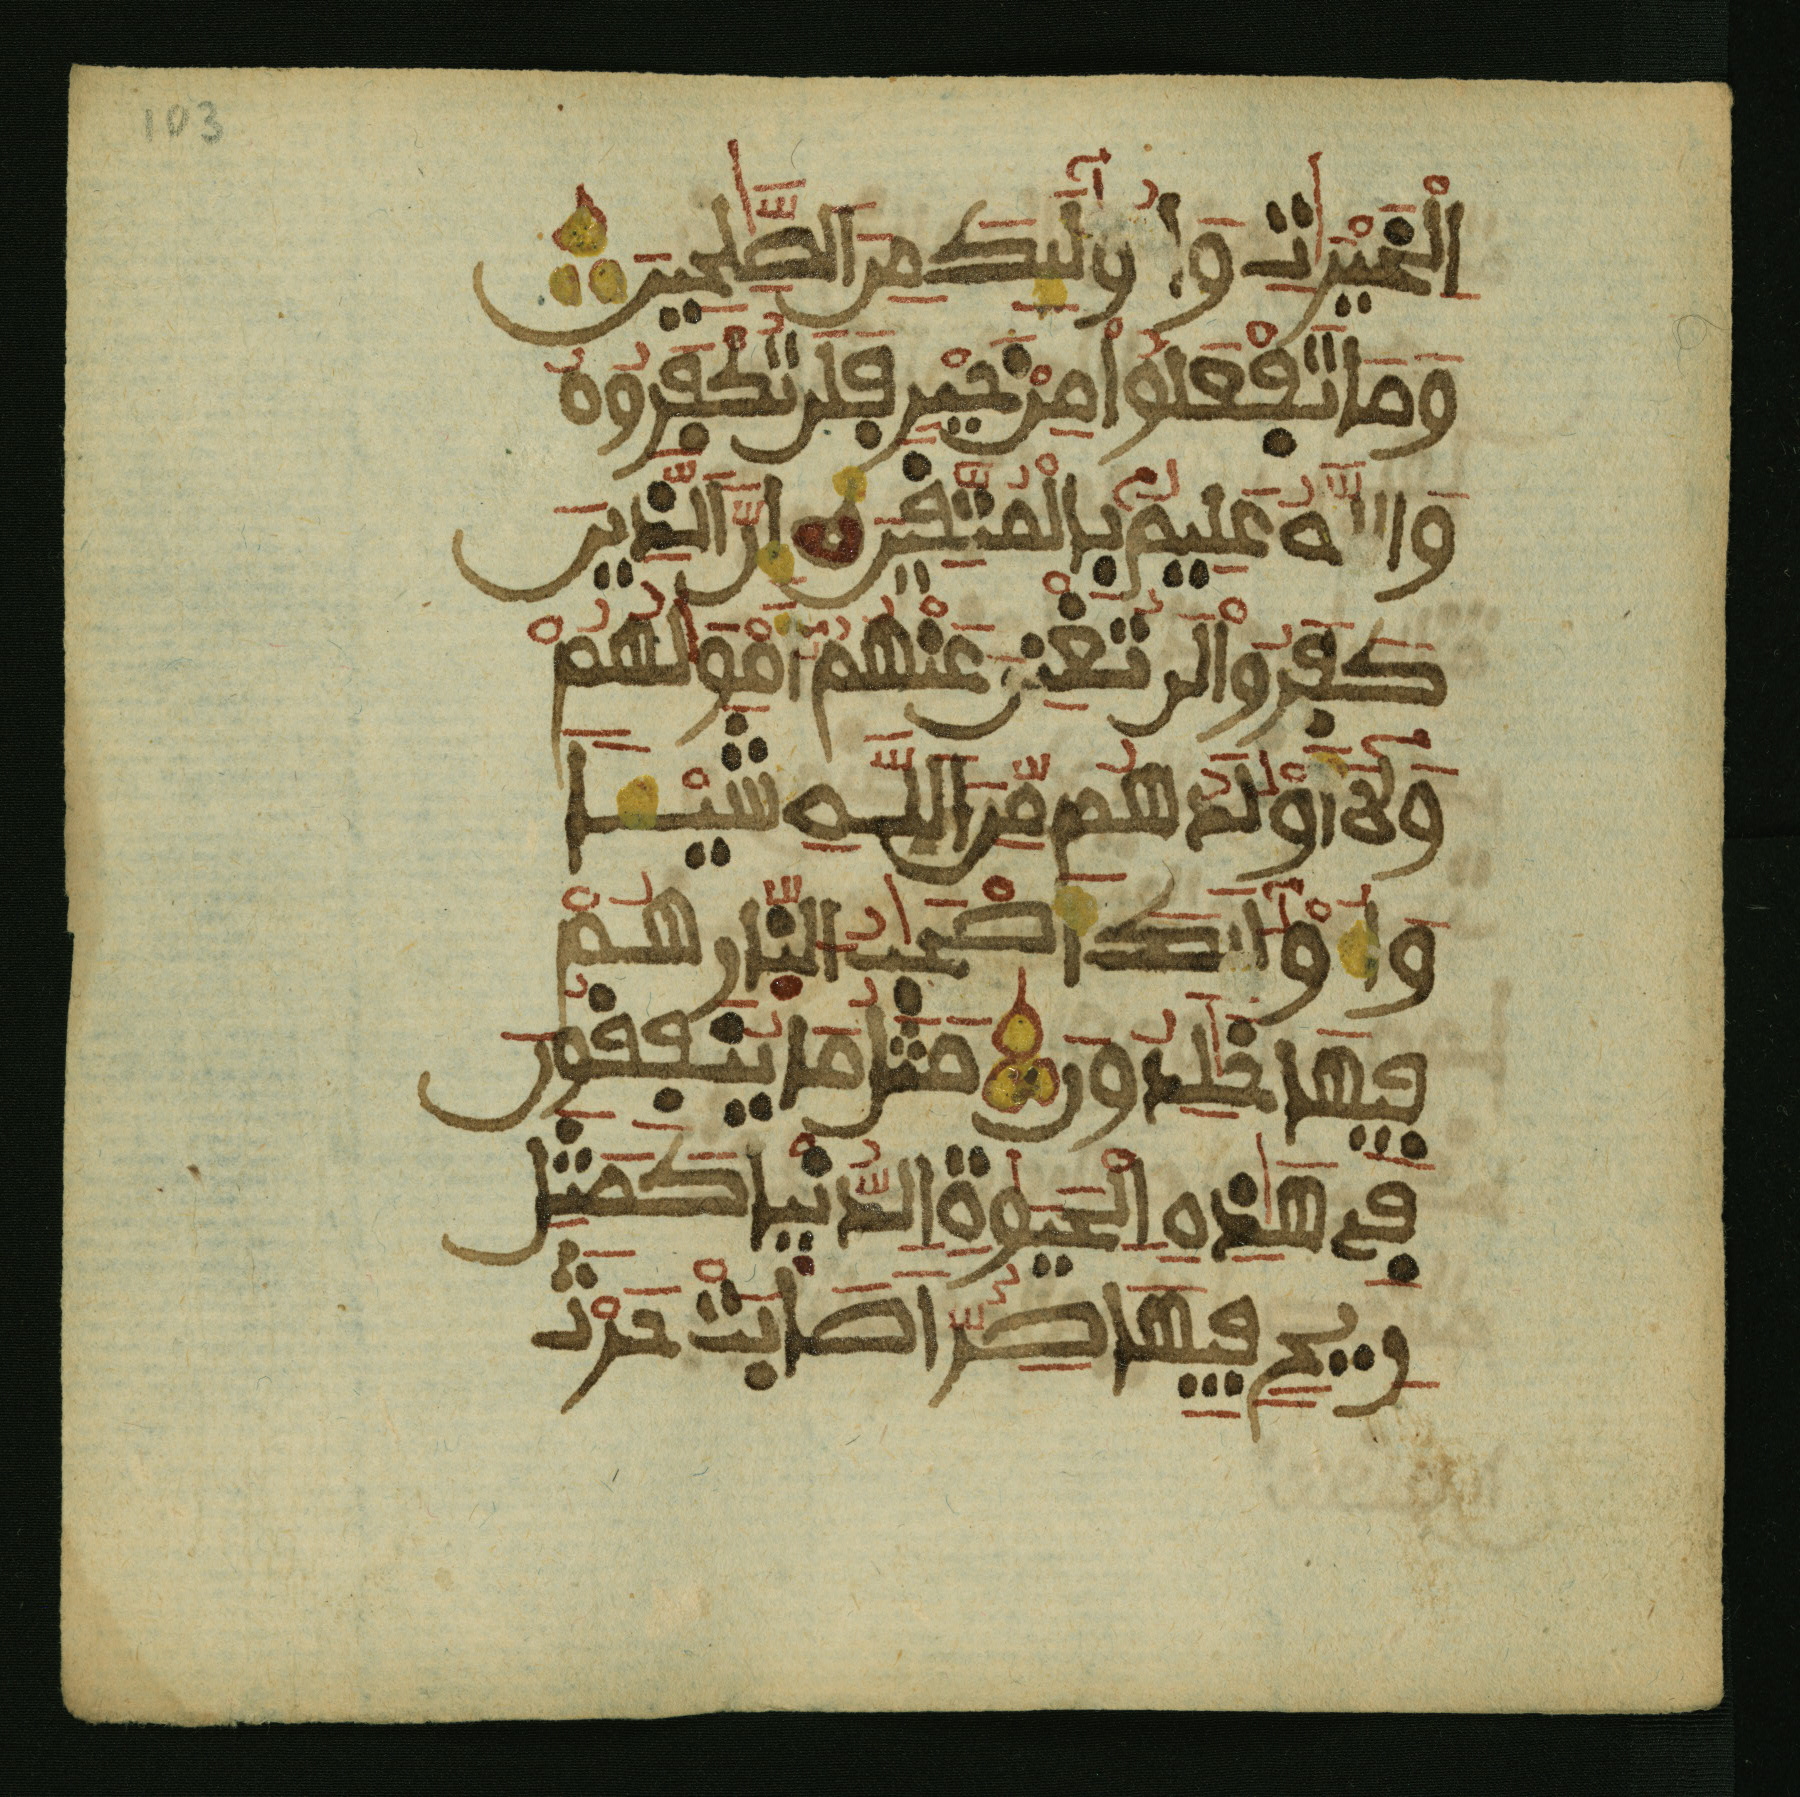 103
الْخَيْرَٰتِ وَأُوْلَٰٓئِكَ مِنَ الصَّٰلِحِينَ
وَمَا تَفْعَلُواْ مِنْ خَيْرٍ فَلَن تُكْفَرُوهُ
وَاللَّهُ عَلِيمٌ بِالْمُتَّقِينَ إِنَّ الَّذِينَ
كَفَرُواْ لَن تُغْنِيَ عَنْهُمُ أَمْوَٰلُهُمْ
وَلَآ أَوْلَٰدُهُم مِّنَ اللَّهِ شَيْـًٔا
وَأُوْلَٰٓئِكَ أَصْحَٰبُ النِّارِ هُمْ
فِيهَا خَٰلِدُونَ مَثَلُ مَا يُنفِقُونَ
فِي هَٰذِهِ الْحَيَوٰةِ الدُّنْيَا كَمَثَلِ
رِيحٍ فِيهَا صِرٌّ أَصَابَتْ حَرْثَ